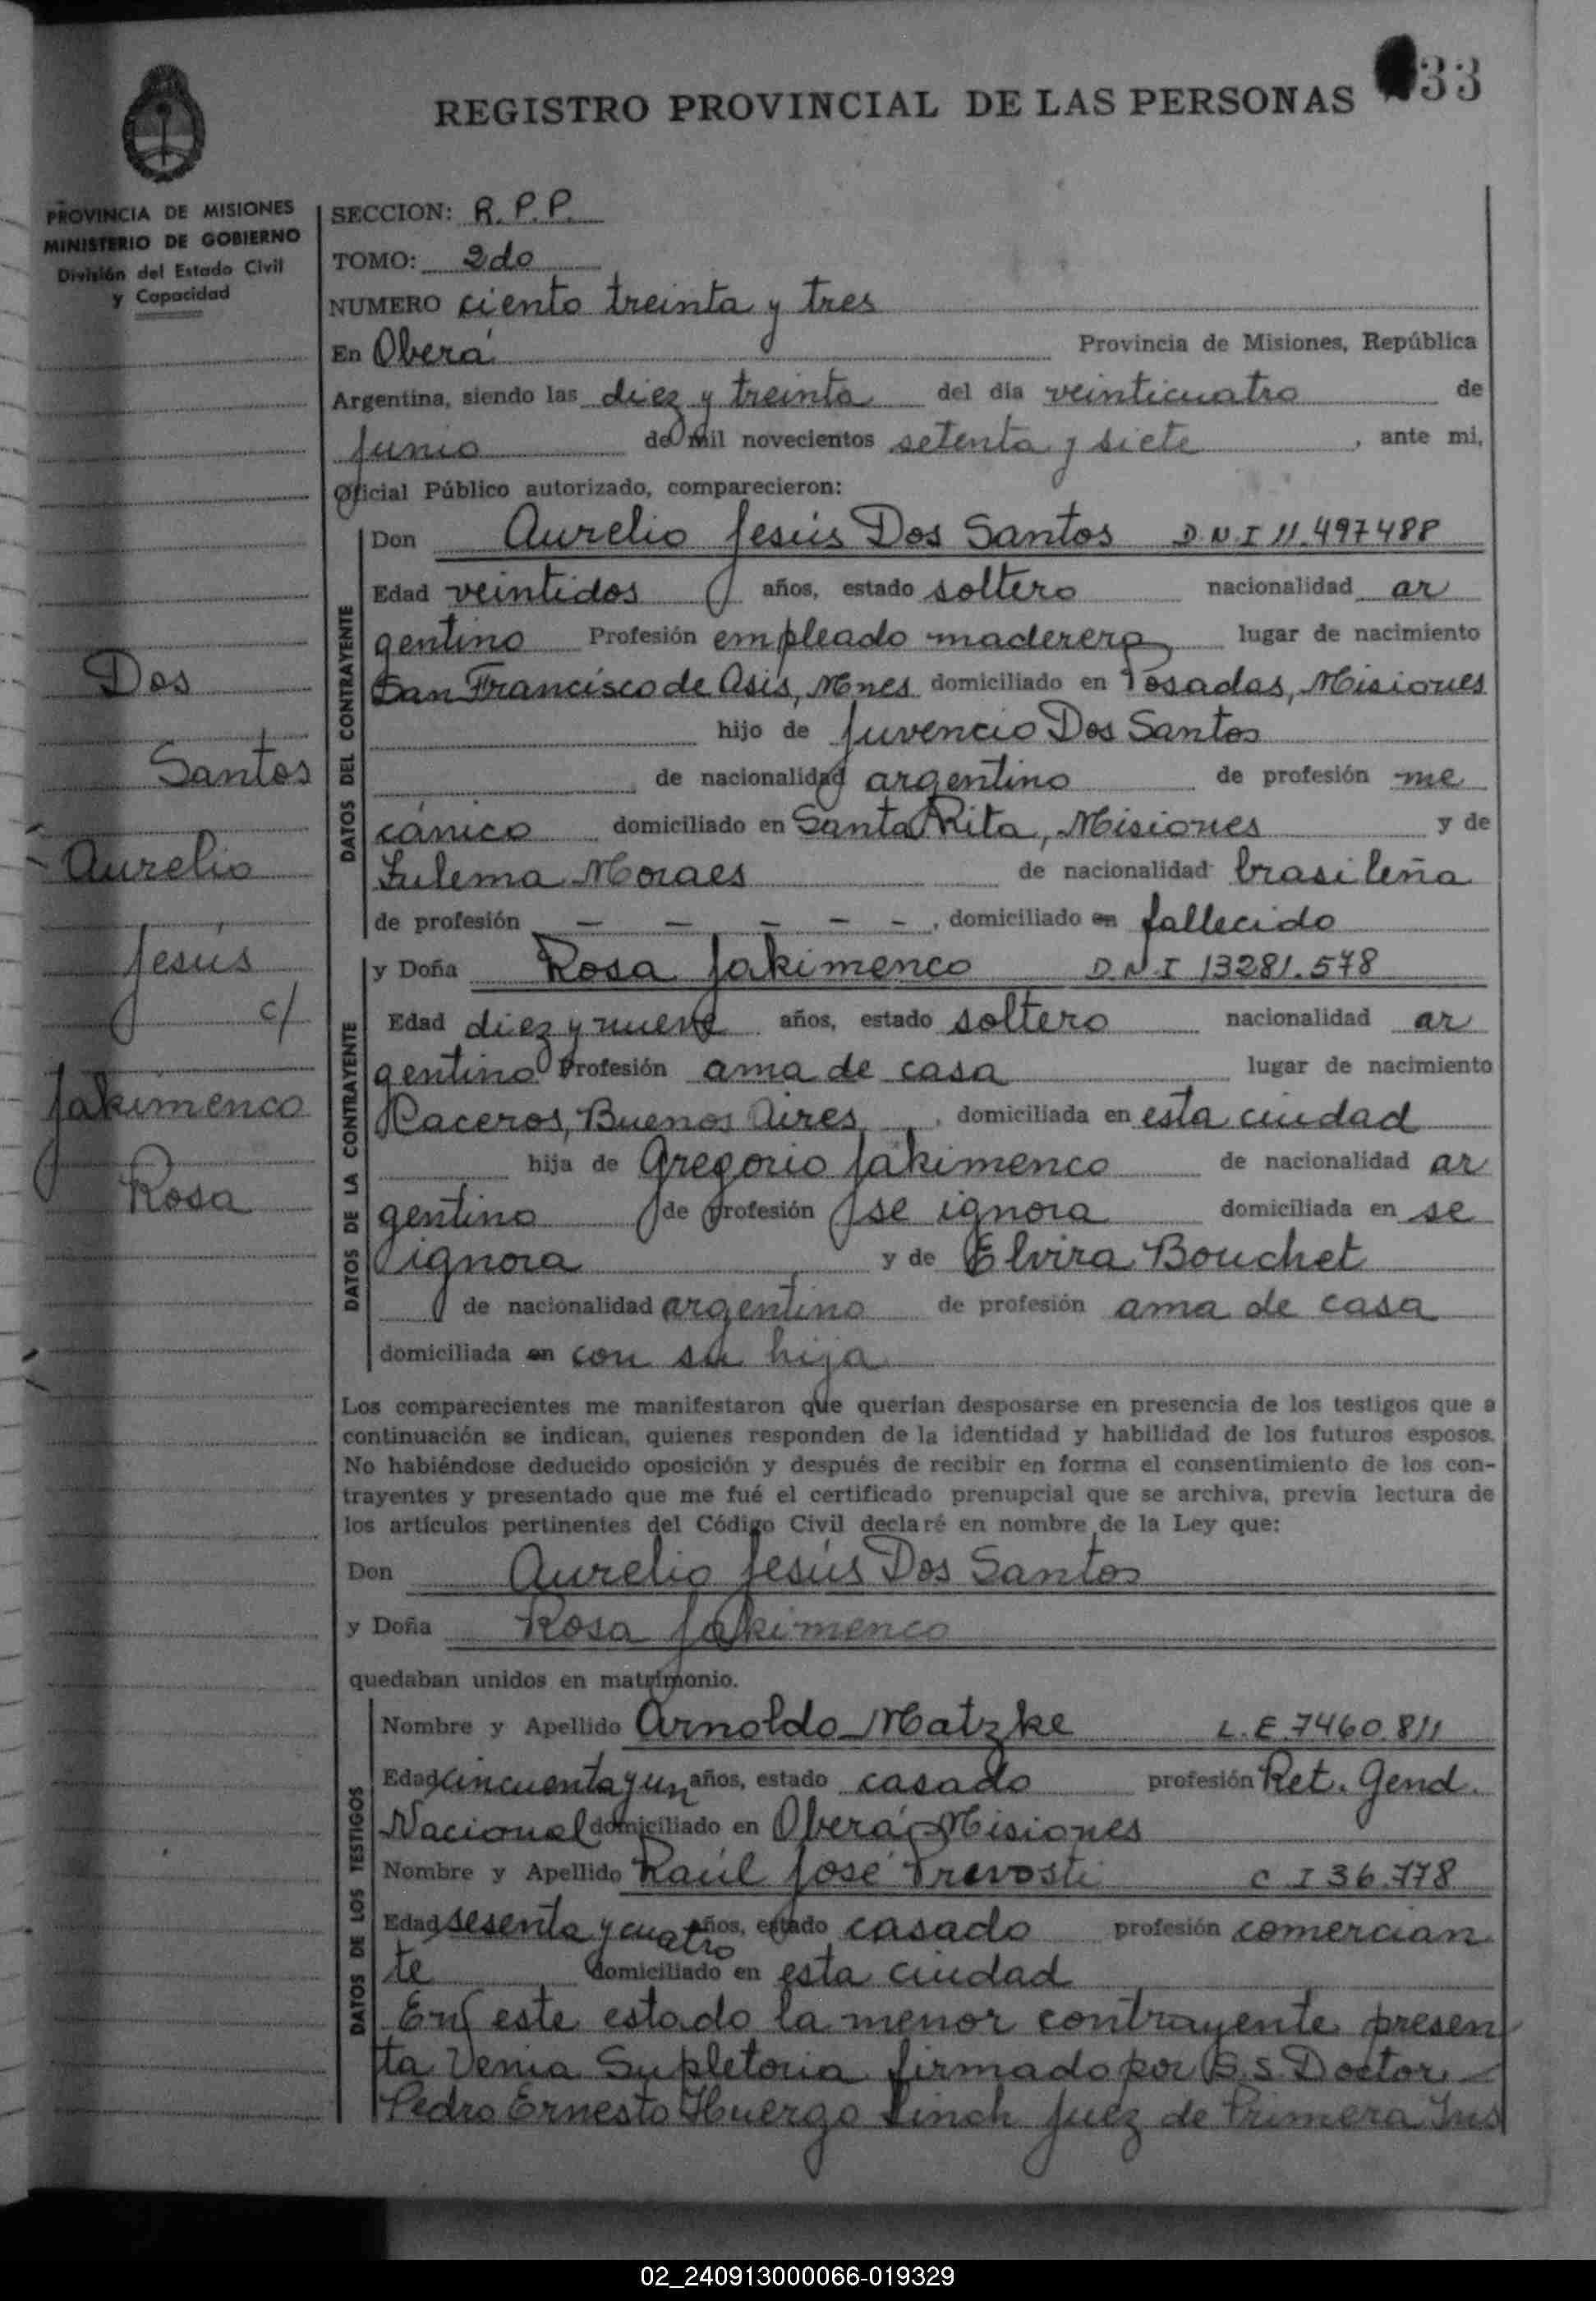 33
REGISTRO PROVINCIAL DE LAS PERSONAS
PROVINCIA DE MISIONES
MINISTERIO DE GOBIERNO
División del Estado Civil
y Capacidad
Dos
Santos
Aurelio
Jesús
c/
Jakimenco
Rosa
SECCION: R. P. P.
TOMO: 2do
NUMERO ciento treinta y tres
En Oberá Provincia de Misiones, República
Argentina, siendo las diez y treinta del día veinticuatro de
Junio de mil novecientos setenta y siete, ante mi,
Oficial Público autorizado, comparecieron:
DATOS DEL CONTRAYENTE
Don Aurelio Jesús Dos Santos D.N.I 11.497488
Edad veintidos años, estado soltero nacionalidad ar
gentino Profesión empleado maderero lugar de nacimiento
San Francisco de Asis, Mnes domiciliado en Posadas, Misiones
hijo de Juvencio Dos Santos
de nacionalidad argentino de profesión me
cánico domiciliado en Santa Rita, Misiones y de
Zulema Moraes de nacionalidad brasileña
de profesión – – – – –, domiciliado en fallecido
DATOS DE LA CONTRAYENTE
y Doña Rosa Jakimenco D.N.I 13281.578
Edad diez y nueve años, estado soltero nacionalidad ar
gentino Profesión ama de casa lugar de nacimiento
Caceros, Buenos Aires, domiciliada en esta ciudad
hija de Gregorio Jakimenco de nacionalidad ar
gentino de profesión se ignora domiciliada en se
ignora y de Elvira Bouchet
de nacionalidad argentino de profesión ama de casa
domiciliada en con su hija
Los comparecientes me manifestaron que querían desposarse en presencia de los testigos que a
continuación se indican, quienes responden de la identidad y habilidad de los futuros esposos.
No habiéndose deducido oposición y después de recibir en forma el consentimiento de los con-
trayentes y presentado que me fué el certificado prenupcial que se archiva, previa lectura de
los artículos pertinentes del Código Civil declaré en nombre de la Ley que:
Don Aurelio Jesús Dos Santos
y Doña Rosa Jakimenco
quedaban unidos en matrimonio.
DATOS DE LOS TESTIGOS
Nombre y Apellido Arnoldo Matzke L.E.7460.811
Edad cincuenta y un años, estado casado profesión Ret. Gend.
Nacional domiciliado en Oberá, Misiones
Nombre y Apellido Raúl José Prevosti C I 36.778
Edad sesenta y cuatro años, estado casado profesión comercian
te domiciliado en esta ciudad
En este estado la menor contrayente presen
ta Venia Supletoria firmado por S.S. Doctor
Pedro Ernesto Huergo Linch Juez de Primera Ins
02_240913000066-019329